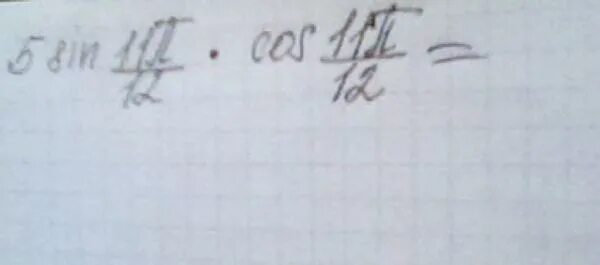 5 sin 11π/12 · cos 11π/12 =